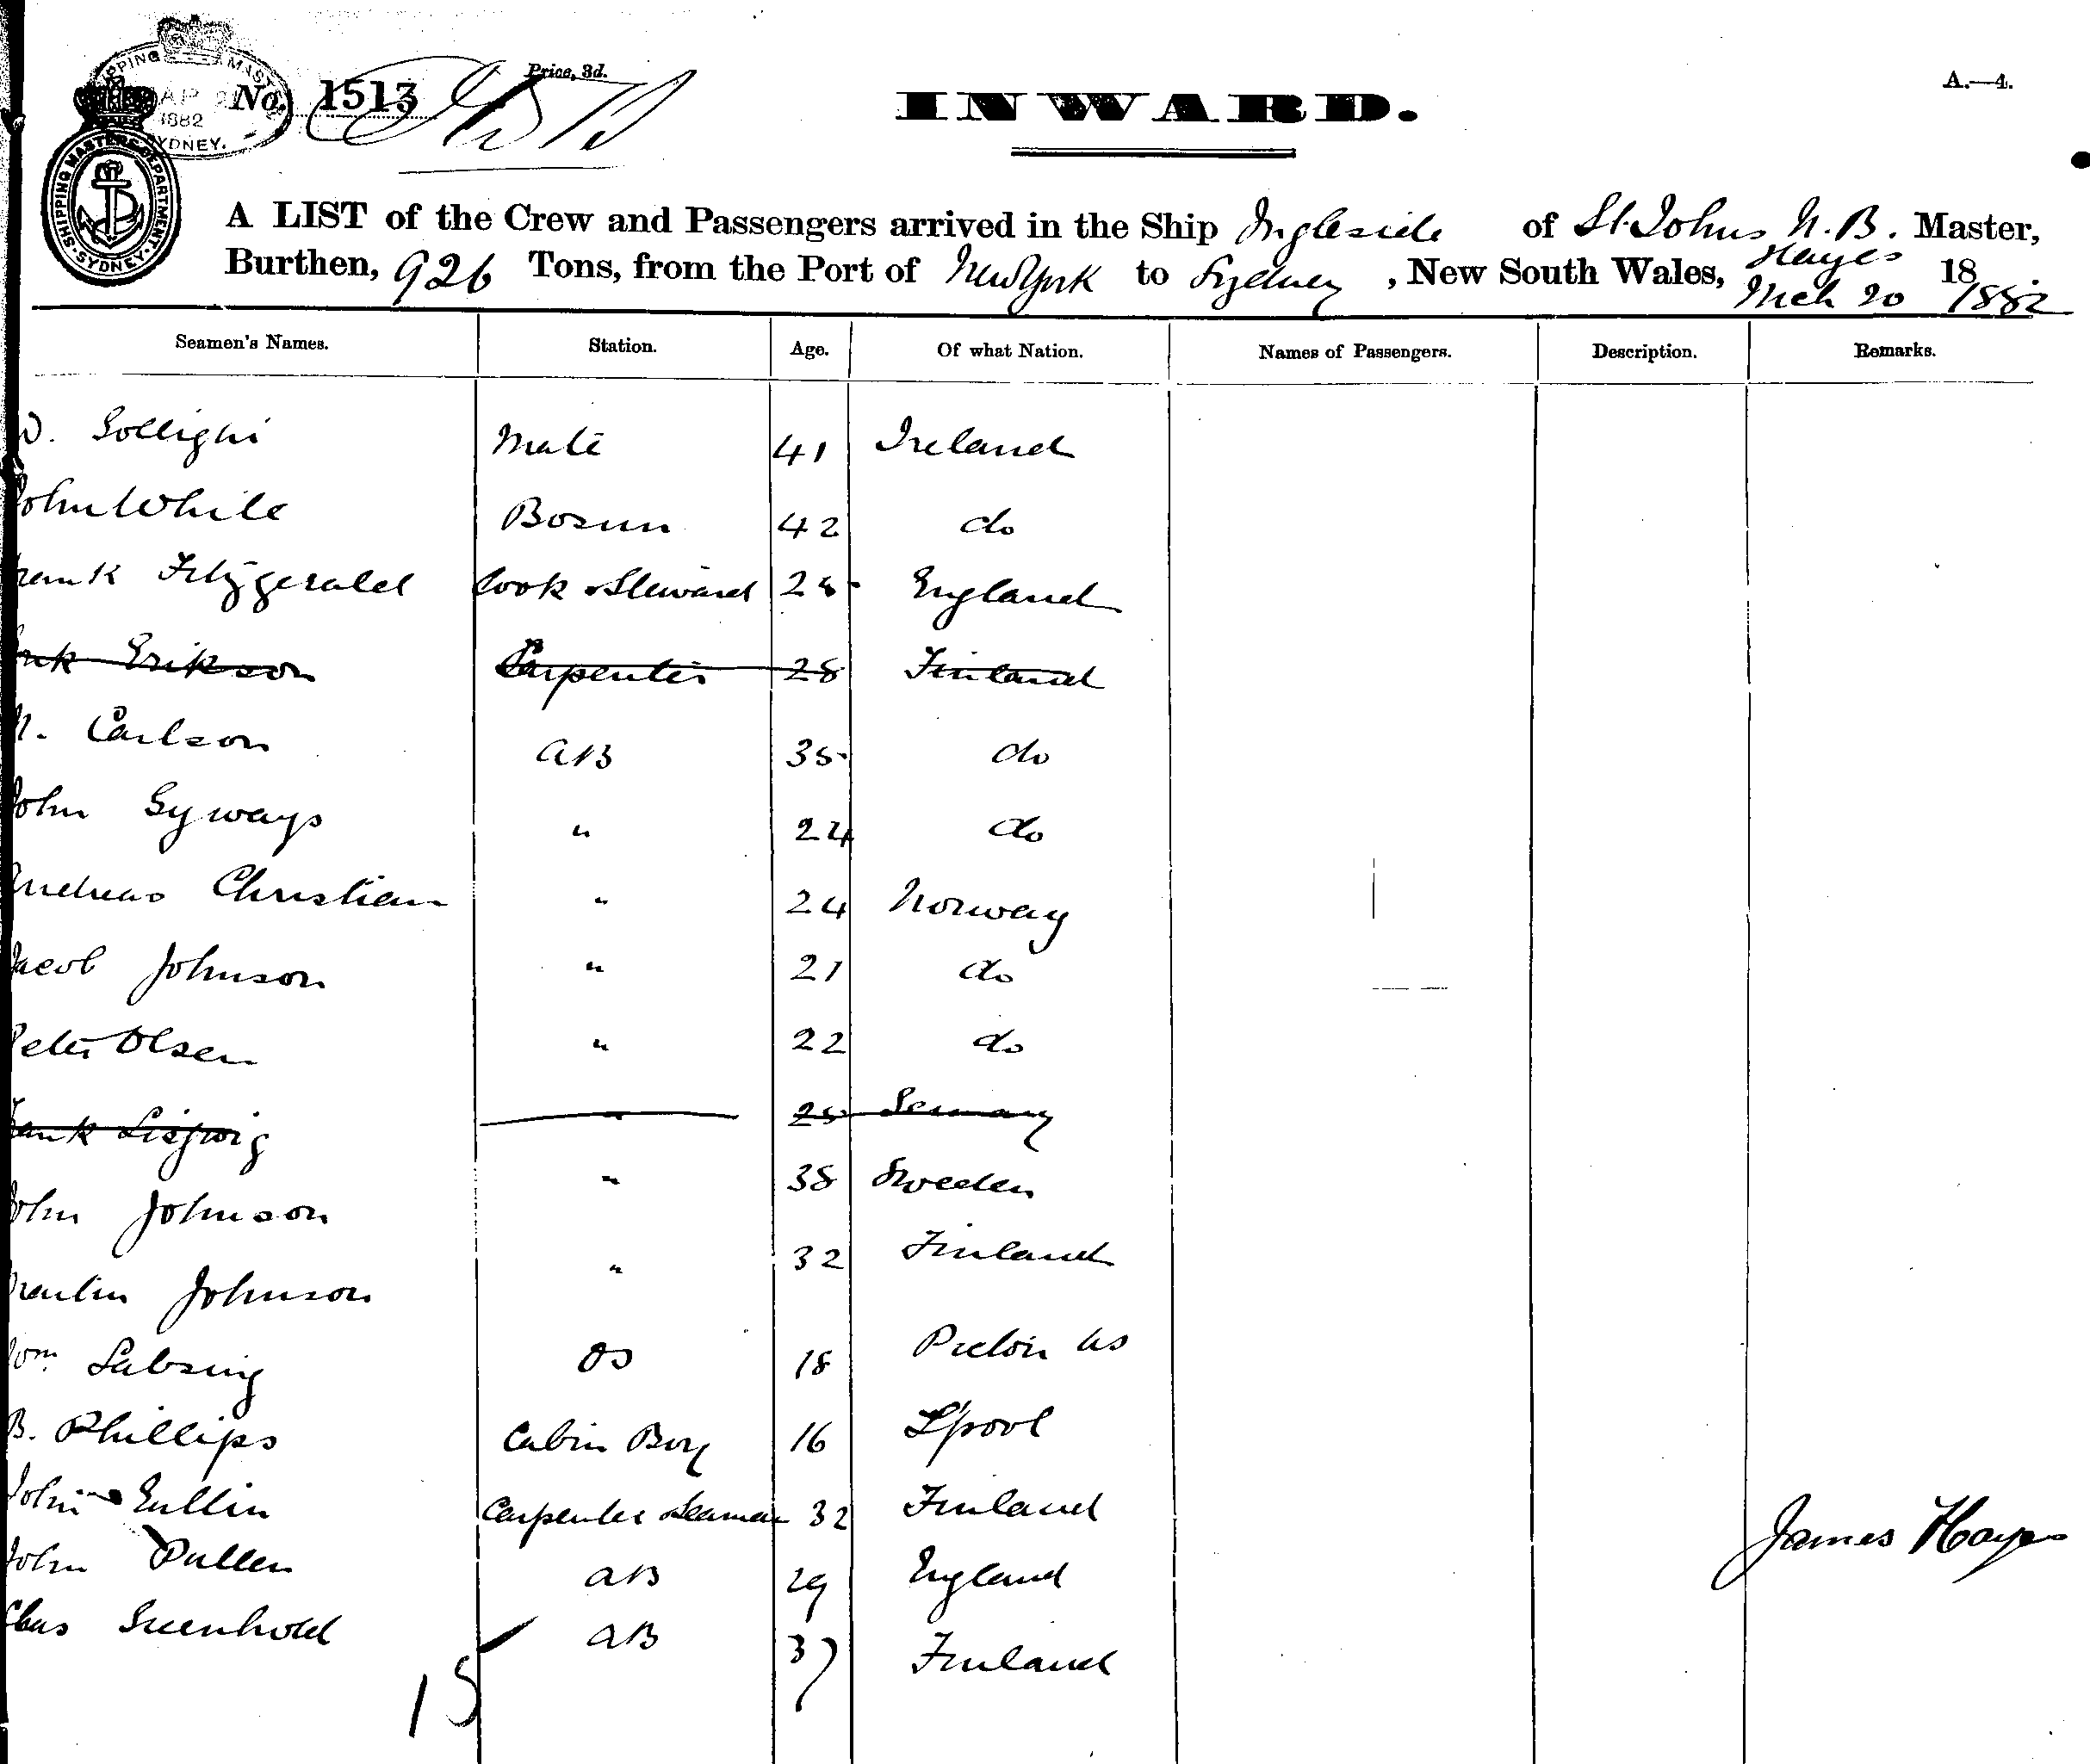 No. 1513
Price, 3d.
A.—4.
SHIPPING MASTER
1882
SYDNEY.
SHIPPING MASTERS DEPARTMENT
SYDNEY
INWARD.
A LIST of the Crew and Passengers arrived in the Ship Ingleside of St. Johns N.B. Master, Hayes
Burthen, 926 Tons, from the Port of New York to Sydney, New South Wales, Mch 20 18 1882
Seamen's Names. Station. Age. Of what Nation. Names of Passengers. Description. Remarks.
D. Mate 41 Ireland
John White Bosun 42 do
Frank Fitzgerald Cook & Steward 25 England
Erik Erikson Carpenter 28 Finland
Carlson AB 35 do
John " 24 do
Andreas Christian " 24 Norway
Jacob Johnson " 21 do
Peter Olsen " 22 do
Frank " 25 Germany
John Johnson " 38 Sweden
Johnson " 32 Finland
Wm OS 18 Pictou NS
B. Phillips Cabin Boy 16 L'pool
John Carpenter & Seaman 32 Finland
John Pullen AB 29 England
Chas AB 37 Finland
15
James Hayes